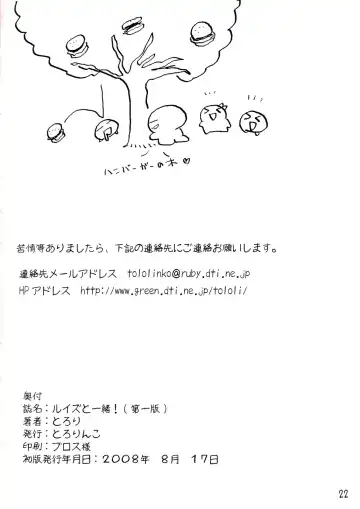 ハンバーガーの木♡
苦情等ありましたら、下記の連絡先にご連絡お願いします。
連絡先メールアドレス tololinko@ruby.dti.ne.jp
HPアドレス http://www.green.dti.ne.jp/tololi/
奥付
誌名:ルイズと一緒!(第一版)
著者:とろり
発行:とろりんこ
印刷:プロス様
初版発行年月日:2008年 8月 17日
22